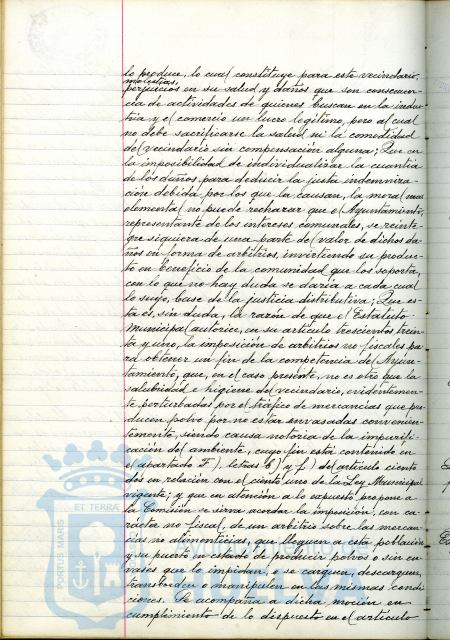 lo produce, lo cual constituye para este vecindario,
molestias,
perjuicios en su salud y daños que son consecuen-
cia de actividades de quienes buscan en la indus-
tria y el comercio un lucro legítimo, pero al cual
no debe sacrificarse la salud ni la comodidad
del vecindario sin compensación alguna; Que en
la imposibilidad de individualizar la cuantía
de los daños, para deducir la justa indemniza-
ción debida por los que la causan, la moral mas
elemental no puede rechazar que el Ayuntamiento,
representante de los intereses comunales, se reinte-
gre siquiera de una parte del valor de dichos da-
ños en forma de arbitrios, invirtiendo su produc-
to en beneficio de la comunidad que los soporta,
con lo que no hay duda se daría a cada cual
lo suyo, base de la justicia distributiva; Que es-
ta es, sin duda, la razón de que el Estatuto
Municipal autorice, en su artículo trescientos trein-
ta y uno, la imposición de arbitrios no fiscales pa-
ra obtener un fin de la competencia del Ayun-
tamiento, que, en el caso presente, no es otro que la
salubridad e higiene del vecindario, evidentemen-
te perturbadas por el tráfico de mercancias que pro-
ducen polvo por no estar envasadas convenien-
temente, siendo causa notoria de la impurifi-
cación del ambiente, cuyo fin está contenido en
el apartado F), letras b) y f) del artículo ciento
dos en relación con el ciento uno de la Ley Municipal
vigente; y que en atención a lo expuesto propone a
la Comisión se sirva acordar la imposición, con ca-
rácter no fiscal, de un arbitrio sobre las mercan-
cías no alimenticias, que lleguen a esta población
y su puerto en estado de producir polvos o sin en-
vases que lo impidan, o se carguen, descarguen,
transborden o manipulen en las mismas condi-
ciones. Se acompaña a dicha moción en
cumplimiento de lo dispuesto en el artículo
ET TERRA
PORTUS MARIS